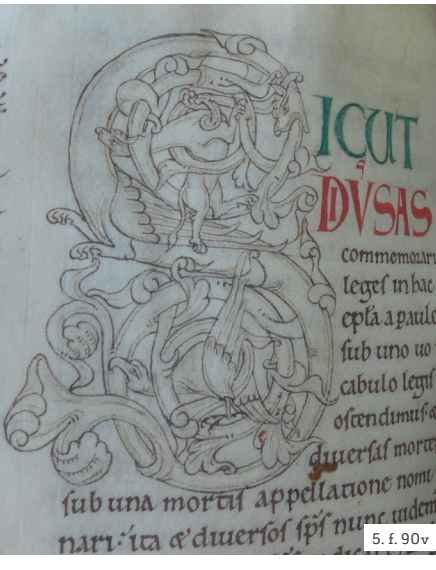 SICUT
DVSAS
commemorari
leges in hac
epła a paulo
sub uno uo
cabulo legis
ostendimus &
diuersas morte
sub una mortis appellatione nomi
nari: ita & diuersos sps̄ nunc uidem
5. f. 90v